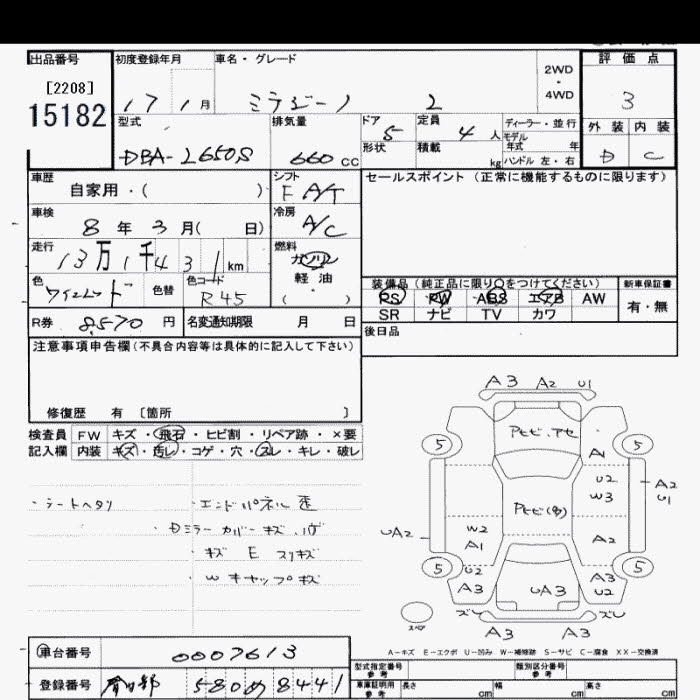 出品番号 初度登録年月 車名・グレード 2WD・4WD 評価点
[2208]
15182
17 1月 ミラジーノ 2 3
型式 排気量 ドア 5 定員 4人 ディーラー・並行 外装 内装
モデル
形状 積載 kg 年式 年
DBA-L650S 660cc ハンドル 左・右 D C
車歴 シフト セールスポイント(正常に機能するものに限ります)
自家用・( ) F A/T
車検 冷房
8年3月( 日) A/C
走行 燃料
13万1千431km ガソリン
色 色替 色コード 軽油
ワインレッド R45 ( )
装備品(純正品に限り○をつけてください) 新車保証書
PS PW ABS エアB AW 有・無
SR ナビ TV カワ
R券 8,570円 名変通知期限 月 日 後日品
注意事項申告欄(不具合内容等は具体的に記入して下さい)
修復歴 有〔箇所 〕
検査員 FW キズ・飛石・ヒビ割・リペア跡・×要
記入欄 内装 キズ・汚レ・コゲ・穴・スレ・キレ・破レ
・シートヘタリ ・エンドパネル歪
・Dミラーカバーキズ
・キズ E スリキズ
・Wキャップキズ
A3 A2 U1
Pヒビ.アセ
5 5
A1
U2
W3 A2
U1
Pヒビ(多)
UA2 W2
A1 A2
5 5
U2 A3
A3 UA3 U2
スペア ズレ ズレ
A3 A3
A-キズ E-エクボ U-凹み W-補修跡 S-サビ C-腐食 XX-交換済
車台番号 0007613
登録番号 春日部 580め8441
型式指定番号 参考 類別区分番号 参考
車庫証明用 参考 長さ cm 幅 cm 高さ cm